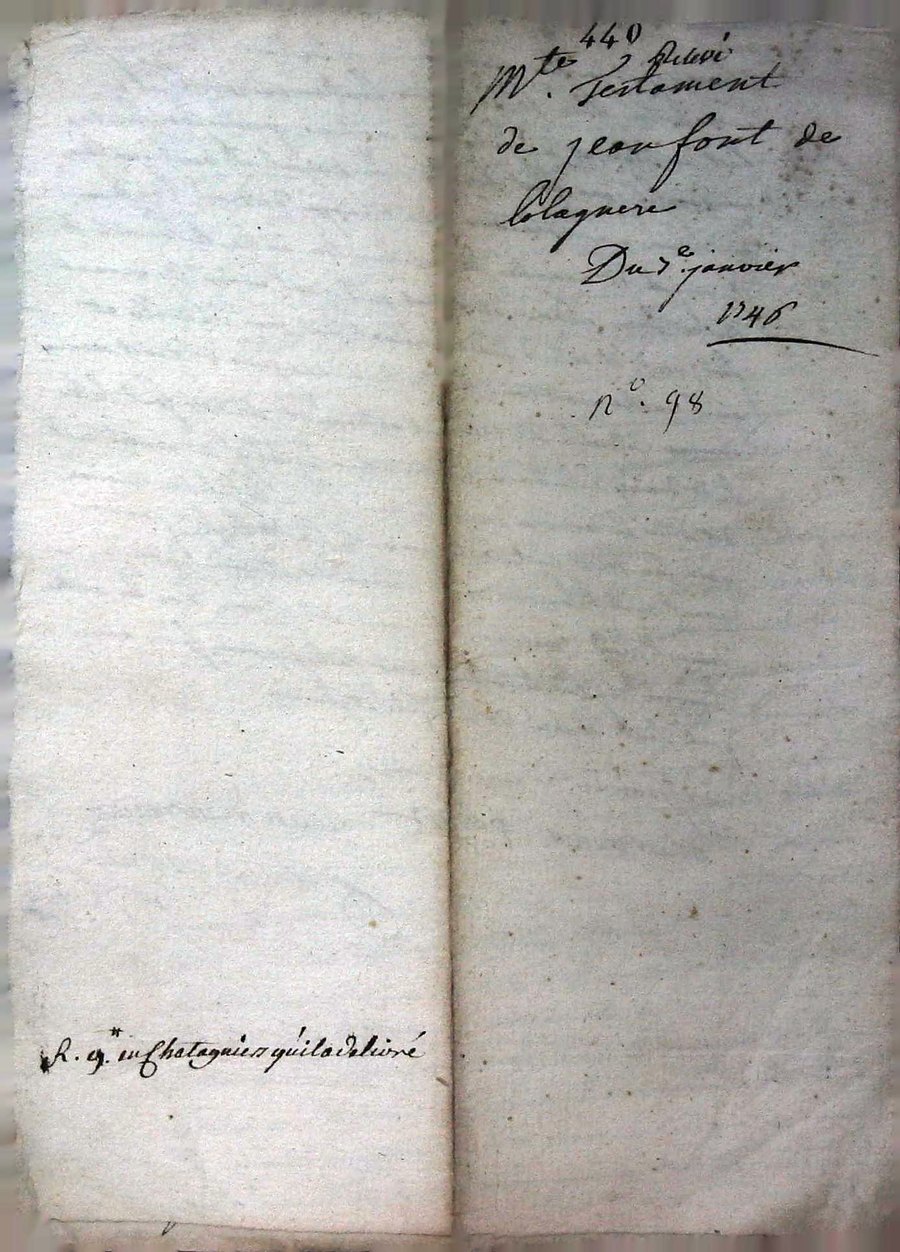 440
Mte. Testament
de jean font de
lolagnere
Du 7e janvier
1746
no. 98
R. en Chatagnier qu'il a delivré